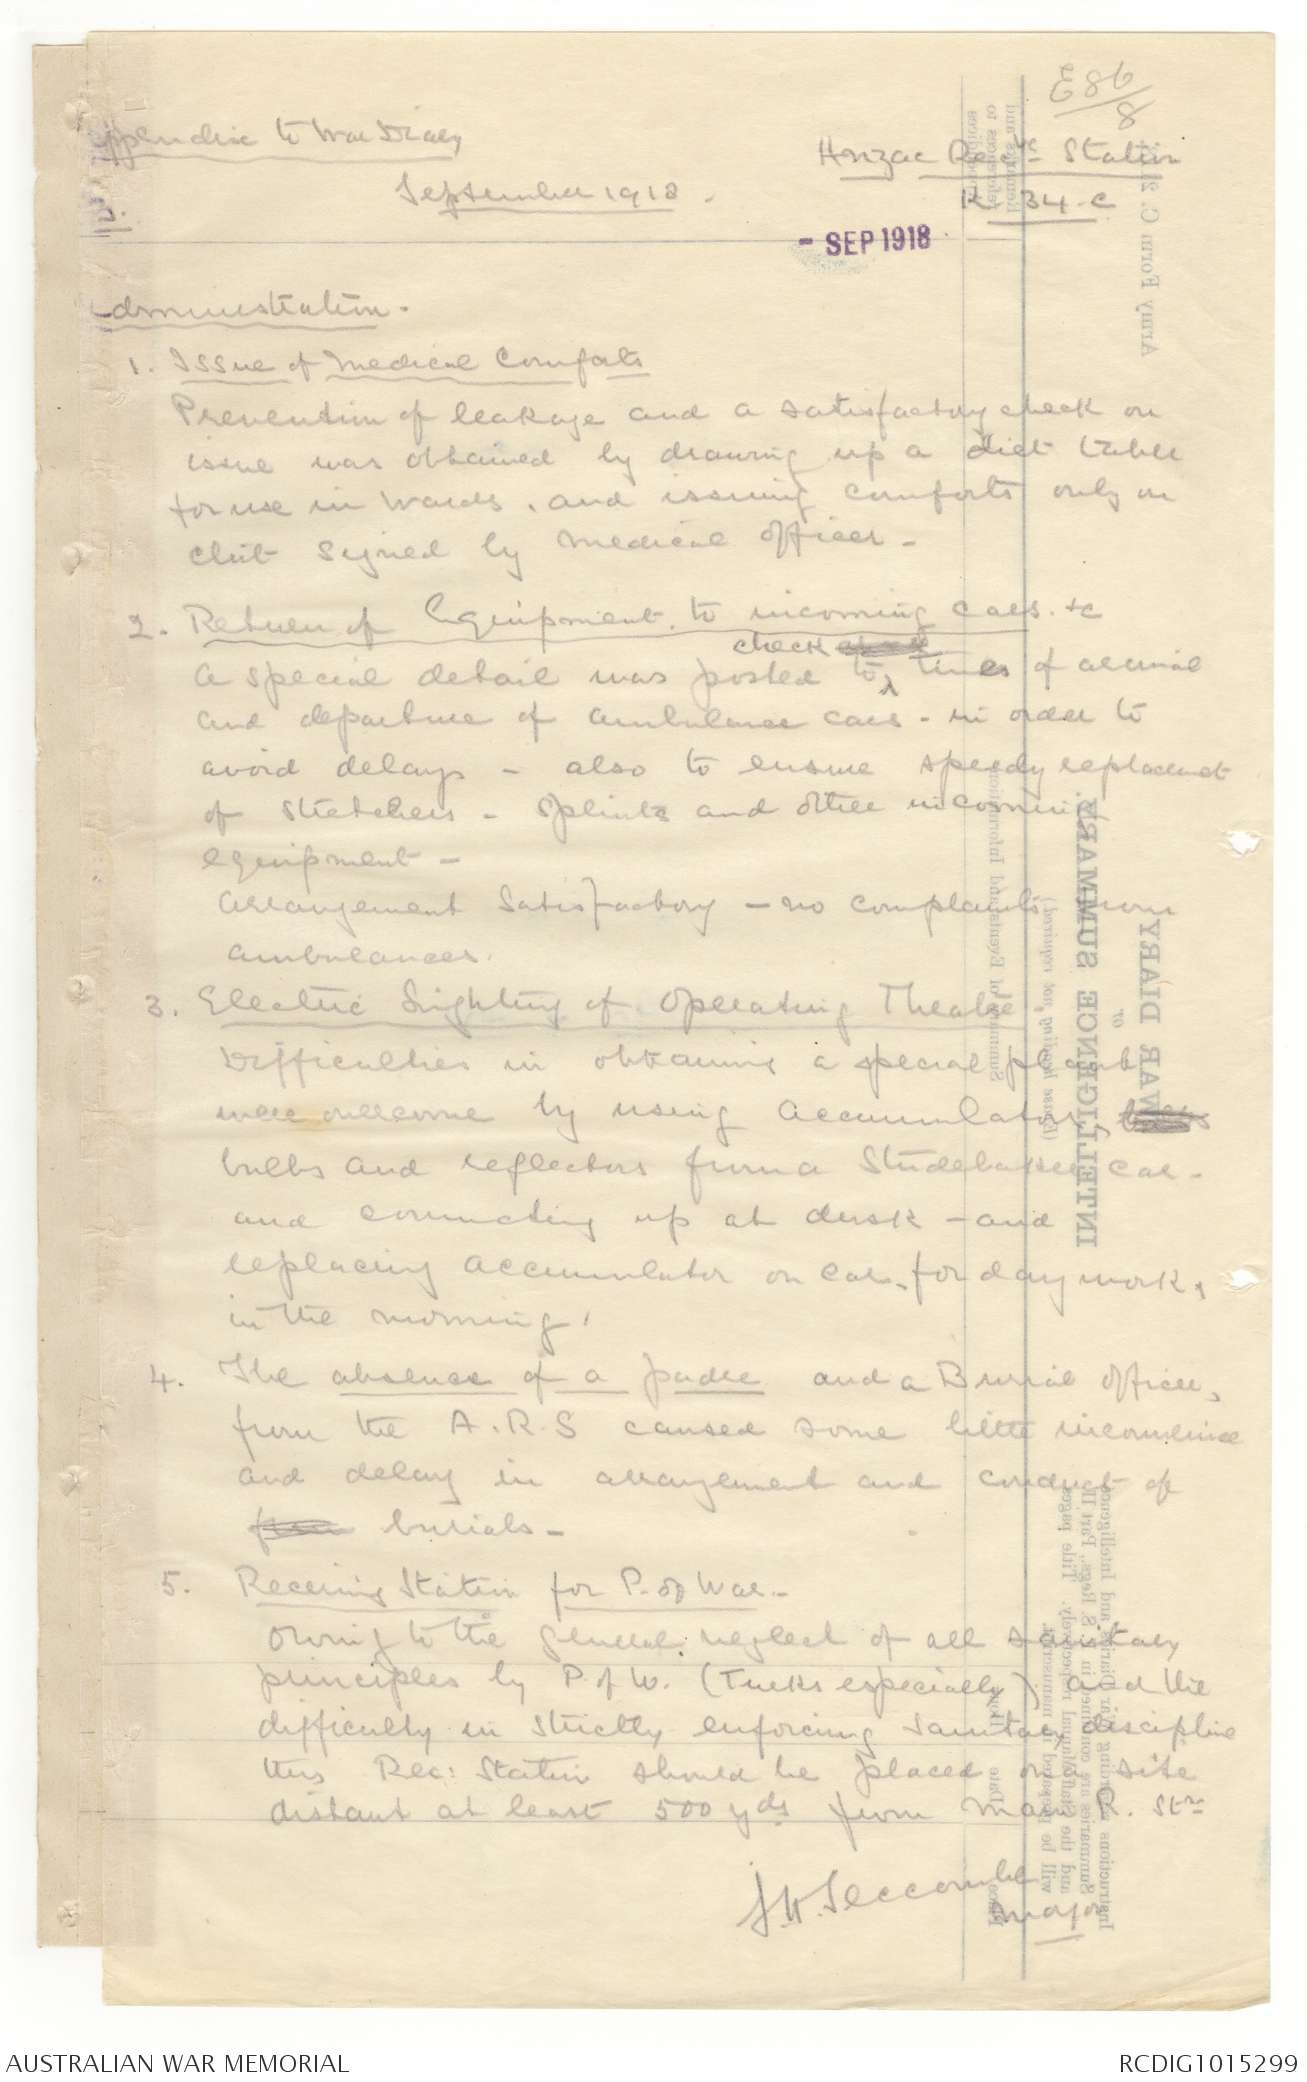 E86/8
Appendix to War Diary
September 1918.
Anzac Rec^vg Station
K 34. C
- SEP 1918
Administration.
1. Issue of Medical Comforts
Prevention of leakage and a satisfactory check on
issue was obtained by drawing up a diet table
for use in wards, and issuing comforts only on
chit signed by Medical Officer -
2. Return of Equipment to incoming cars. &c
check
A special detail was posted to times of arrival
and departure of ambulance cars - in order to
avoid delays - also to ensure speedy replacemet
of stretchers - splints and other incoming
equipment -
Arrangement satisfactory - no complaints from
ambulances.
3. Electric Lighting of Operating Theatre
Difficulties in obtaining a special plant
were overcome by using accumulator,
bulbs and reflectors from a Studebaker car -
and connecting up at dusk - and
replacing accumulator on car for day work,
in the morning.
4. The absence of a padre and a Burial officer,
from the A.R.S caused some little inconvenience
and delay in arrangement and conduct of
burials -
5. Receiving Station for P. of War. -
Owing to the general neglect of all sanitary
principles by P. of W. (Turks especially) and the
difficulty in strictly enforcing sanitary discipline
this Rec: Station should be placed on a site
distant at least 500 yds from Main R. Stn
J. H. Seccombe
Major
Army Form C. 2118.
WAR DIARY
or
INTELLIGENCE SUMMARY.
(Erase heading not required.)
Instructions regarding War Diaries and Intelligence
Summaries are contained in F. S. Regs., Part II.
and the Staff Manual respectively. Title pages
will be prepared in manuscript.
Place
Date
Hour
Summary of Events and Information
Remarks and
references to
Appendices
AUSTRALIAN WAR MEMORIAL
RCDIG1015299